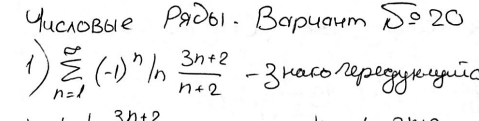 Числовые Ряды. Вариант №20
1) ∞ ∑ n=1 (-1)^n ln (3n+2)/(n+2) - Знакочередующийс
3n+2